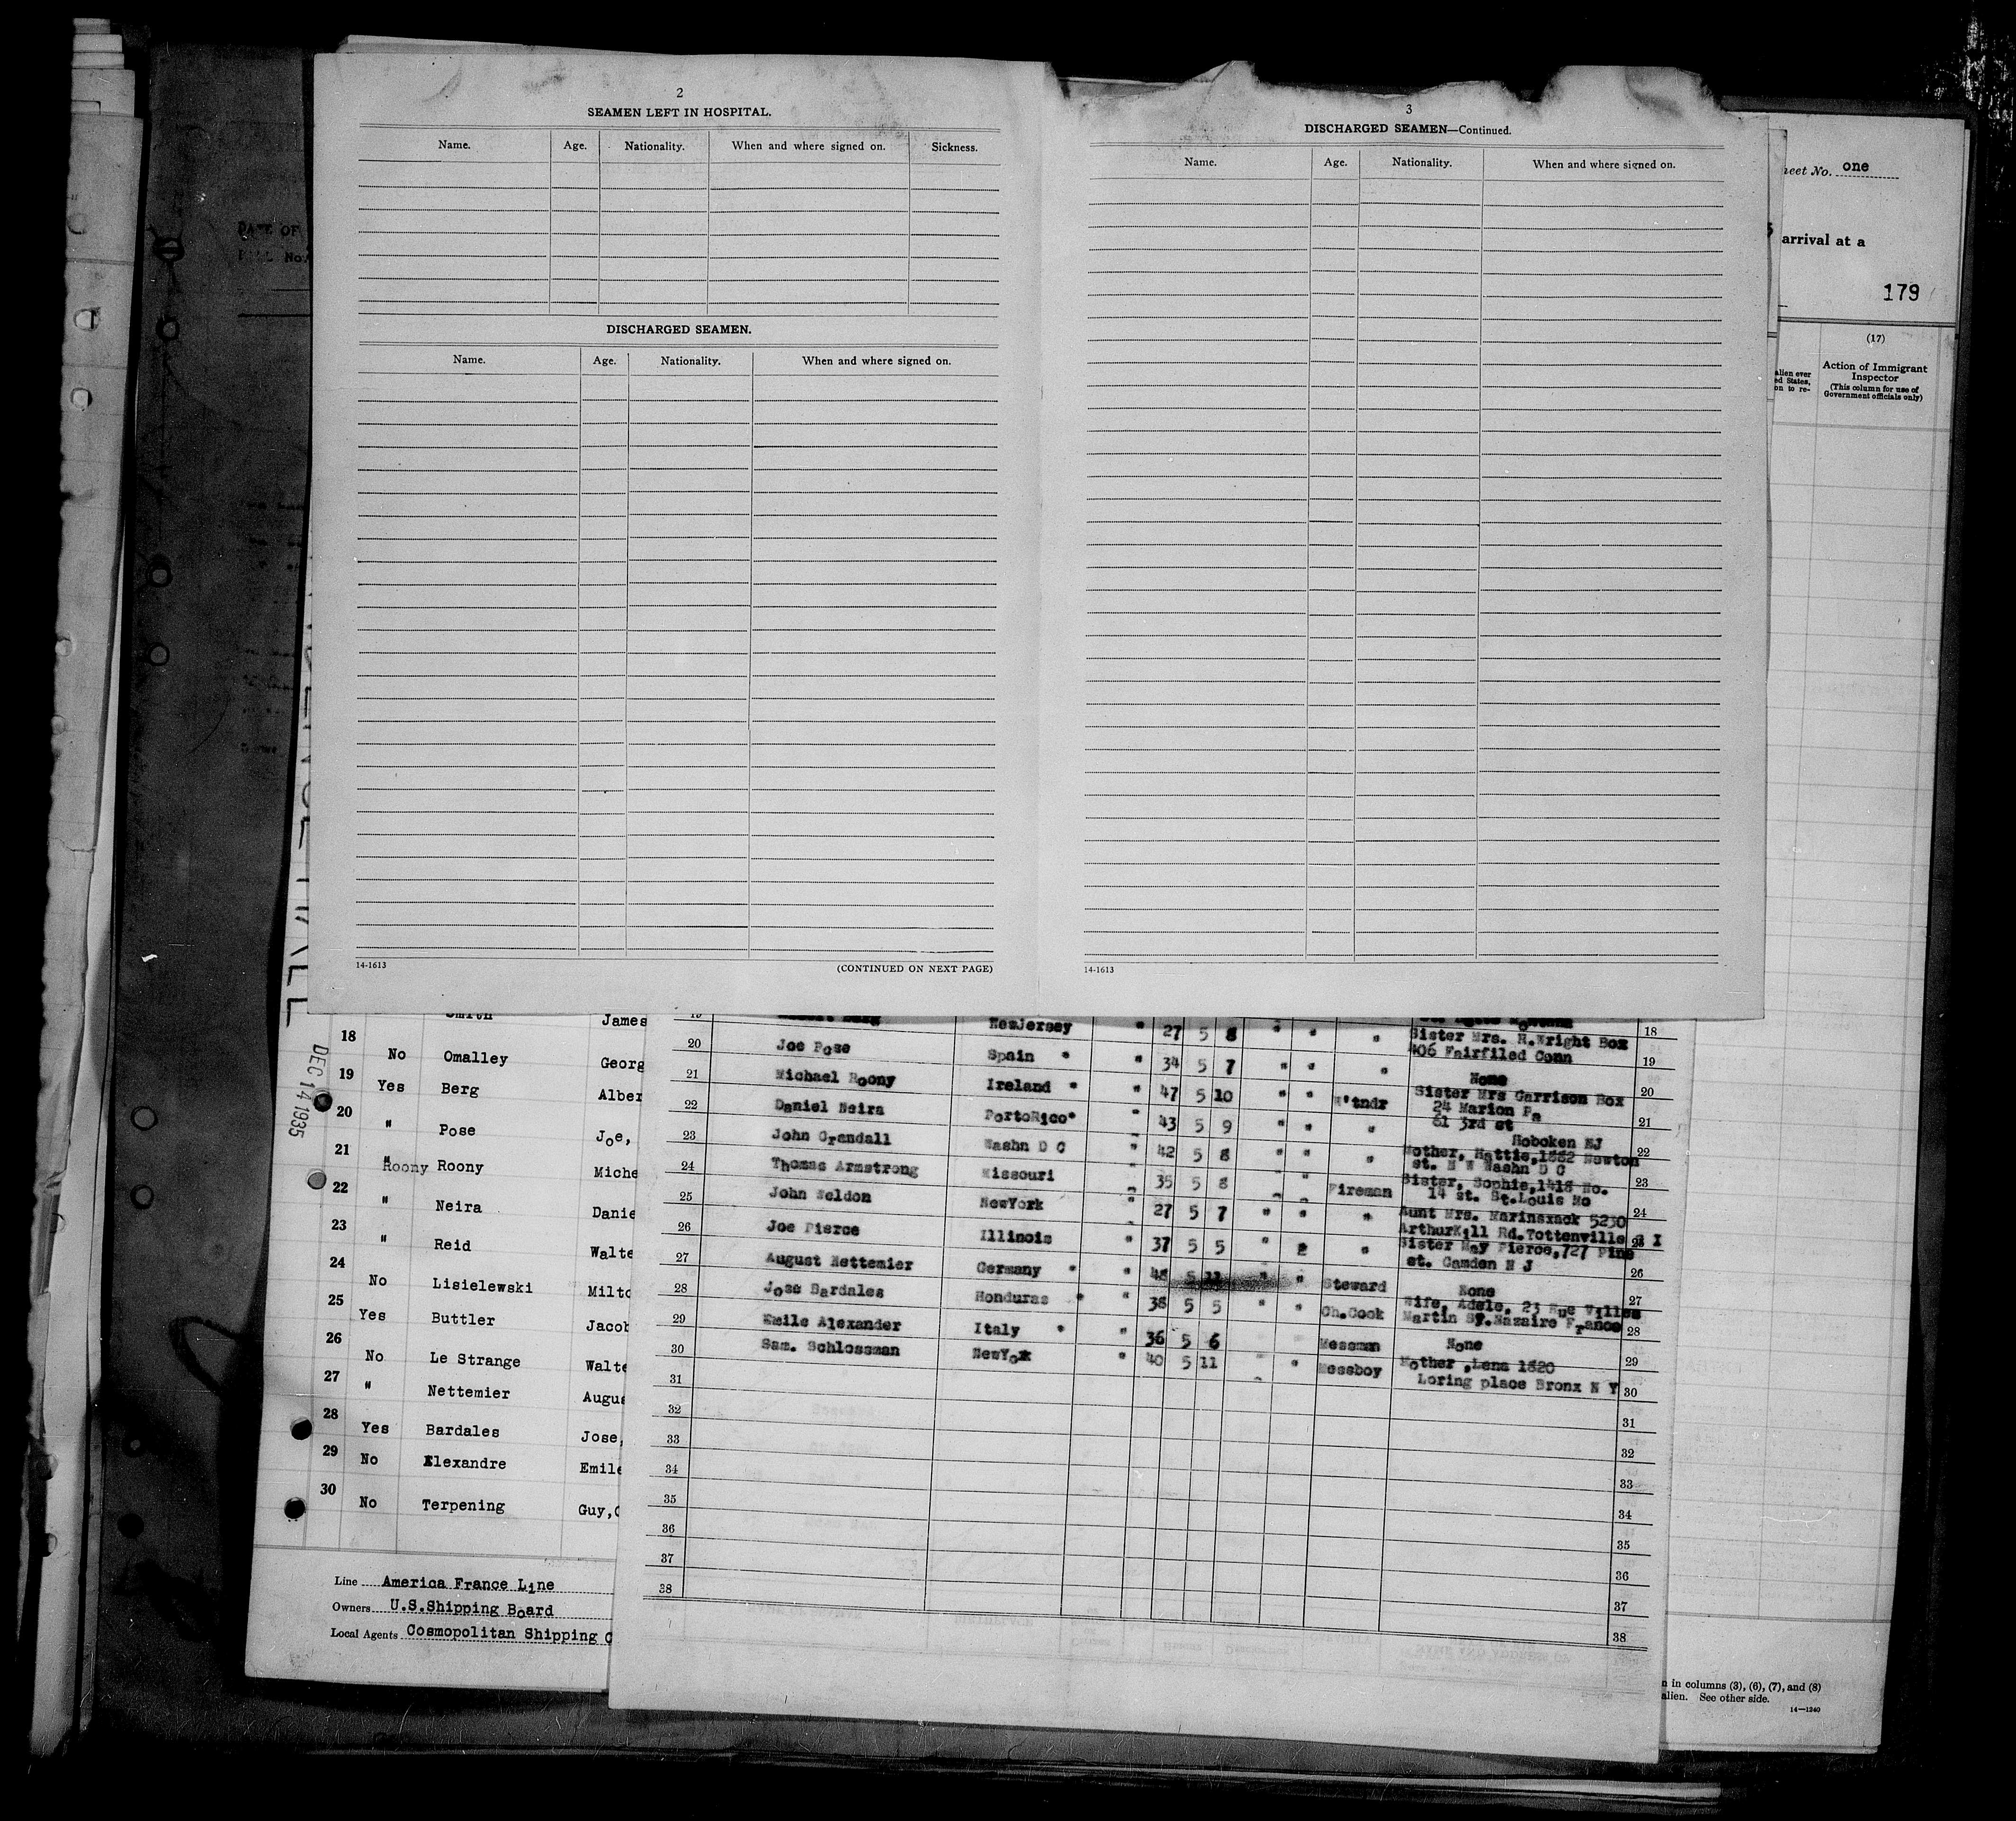 2
SEAMEN LEFT IN HOSPITAL.
Name. Age. Nationality. When and where signed on. Sickness.
DISCHARGED SEAMEN.
Name. Age. Nationality. When and where signed on.
14-1613 (CONTINUED ON NEXT PAGE)
3
DISCHARGED SEAMEN—Continued.
Name. Age. Nationality. When and where signed on.
14-1613
one
arrival at a
179
(17)
Action of Immigrant
Inspector
(This column for use of
Government officials only)
alien ever
ed States,
on to re-
DATE OF
DEC 14 1935
Smith James
18 No Omalley Georg
19 Yes Berg Alber
20 " Pose Joe,
21 " Roony Roony Miche
22 " Neira Danie
23 " Reid Walte
24 No Lisielewski Milto
25 Yes Buttler Jacob
26 No Le Strange Walte
27 " Nettemier Augus
28 Yes Bardales Jose,
29 No Alexandre Emile
30 No Terpening Guy,
Line America France Line
Owners U.S.Shipping Board
Local Agents Cosmopolitan Shipping C
19 NewJersey " 27 5 8 " " " Sister Mrs. R.Wright Box 18
406 Fairfiled Conn 19
20 Joe Pose Spain " " 34 5 7 " " " None 20
21 Michael Roony Ireland " " 47 5 10 " " W'tndr Sister Mrs Garrison Box
24 Marion Pa 21
22 Daniel Neira PortoRico" " 43 5 9 " " " 61 3rd st
Hoboken NJ 22
23 John Crandall Washn D C " 42 5 8 " " " Mother, Hattie,1882 Newton
st. N W Washn D C 23
24 Thomas Armstrong Missouri " 35 5 8 " Fireman Sister, Sophie,1418 No.
14 st. St.Louis Mo 24
25 John Weldon NewYork " 27 5 7 " " " Aunt Mrs. Marinsxack 5230
ArthurKill Rd.Tottenville S I 25
26 Joe Pierce Illinois " 37 5 5 " " " Sister May Pierce,727 Pine
st. Camden N J 26
27 August Nettemier Germany " " 48 5 11 " " Steward None 27
28 Jose Bardales Honduras " " 38 5 5 " " Ch.Cook Wife, Adele, 23 Rue Villes
Martin St.Nazaire France 28
29 Emile Alexander Italy " " 36 5 6 Messman None 29
30 Sam. Schlossman NewYork " 40 5 11 " " Messboy Mother ,Lena 1820
Loring place Bronx N Y 30
31 31
32 32
33 33
34 34
35 35
36 36
37 37
38 38
n in columns (3), (6), (7), and (8)
alien. See other side.
14—1240